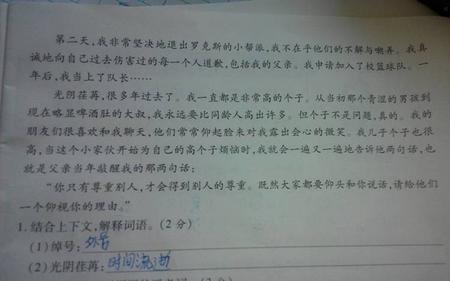 第二天,我非常坚决地退出罗克斯的小帮派,我不在乎他们的不解与嘲弄。我真
诚地向自己过去伤害过的每一个人道歉,包括我的父亲。我申请加入了校篮球队。一
年后,我当上了队长……
光阴荏苒,很多年过去了。我一直都是非常高的个子。从当初那个青涩的男孩到
现在略显啤酒肚的大叔,我永远要比同龄人高出许多。但个子不是问题,真的。我的
朋友们很喜欢和我聊天,他们常常仰起脸来对我露出会心的微笑。我儿子个子也很
高,当这个小家伙开始为自己的高个子烦恼时,我就会一遍又一遍地告诉他两句话,也
就是父亲当年敲醒我的那两句话:
“你只有尊重别人,才会得到别人的尊重。既然大家都要仰头和你说话,请给他们
一个仰视你的理由。”
1.结合上下文,解释词语。(2分)
(1)绰号:外号
(2)光阴荏苒:时间流逝